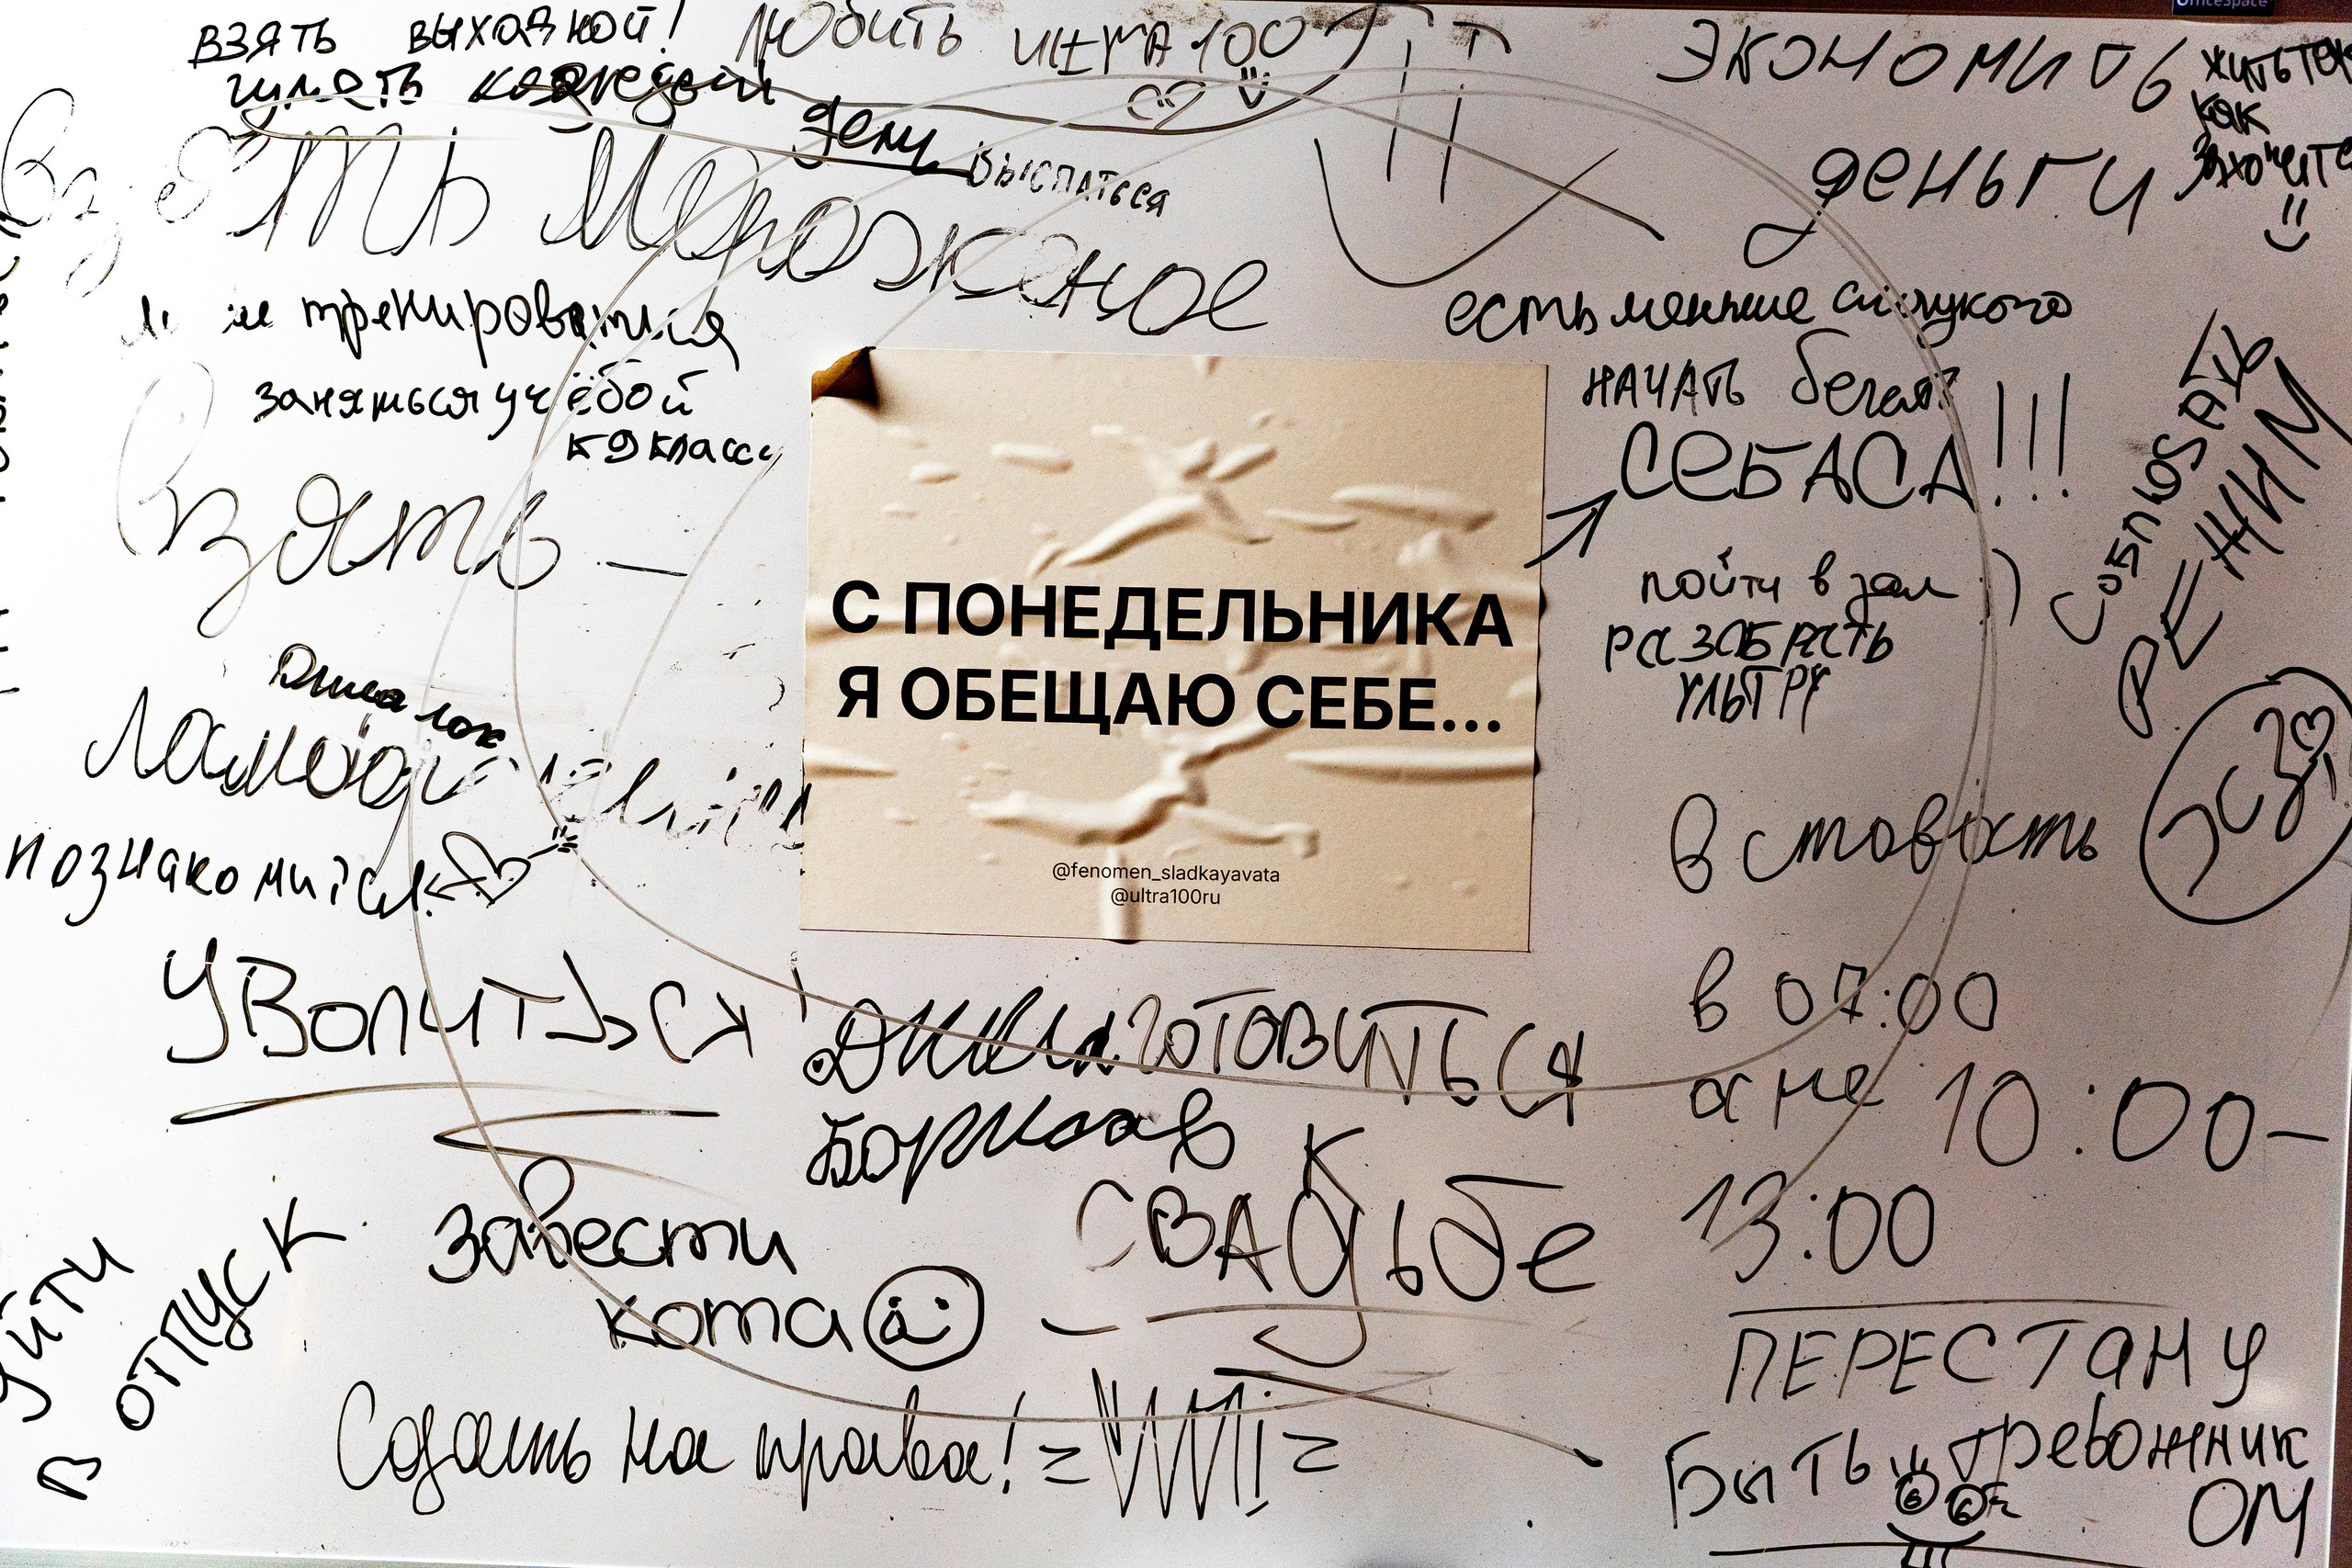 OfficeSpace
ВЗЯТЬ ВЫХОДНОЙ!
ЛЮБИТЬ ULTRA 100
каждый
день
ВЫСПАТЬСЯ
ЭКОНОМИТЬ
ДЕНЬГИ
ЖИТЬ ТАК
как
захочется
мороженое
тренироваться
заняться учёбой
к 9 классу
Взять —
есть меньше сладкого
НАЧАТЬ бегать
СЕБАСА!!!
пойти в зал :)
РАЗОБРАТЬ
УЛЬТРУ
СОБЛЮДАТЬ
РЕЖИМ
С ПОНЕДЕЛЬНИКА
Я ОБЕЩАЮ СЕБЕ...
@fenomen_sladkayavata
@ultra100ru
Вставать
в 07:00
а не 10:00–
13:00
ПЕРЕСТАНУ
Быть тревожник
ОМ
УВОЛИТЬСЯ!
ГОТОВИТЬСЯ
К
СВАДЬБЕ
завести
кота
уйти
в ОТПУСК
Сдать на права!